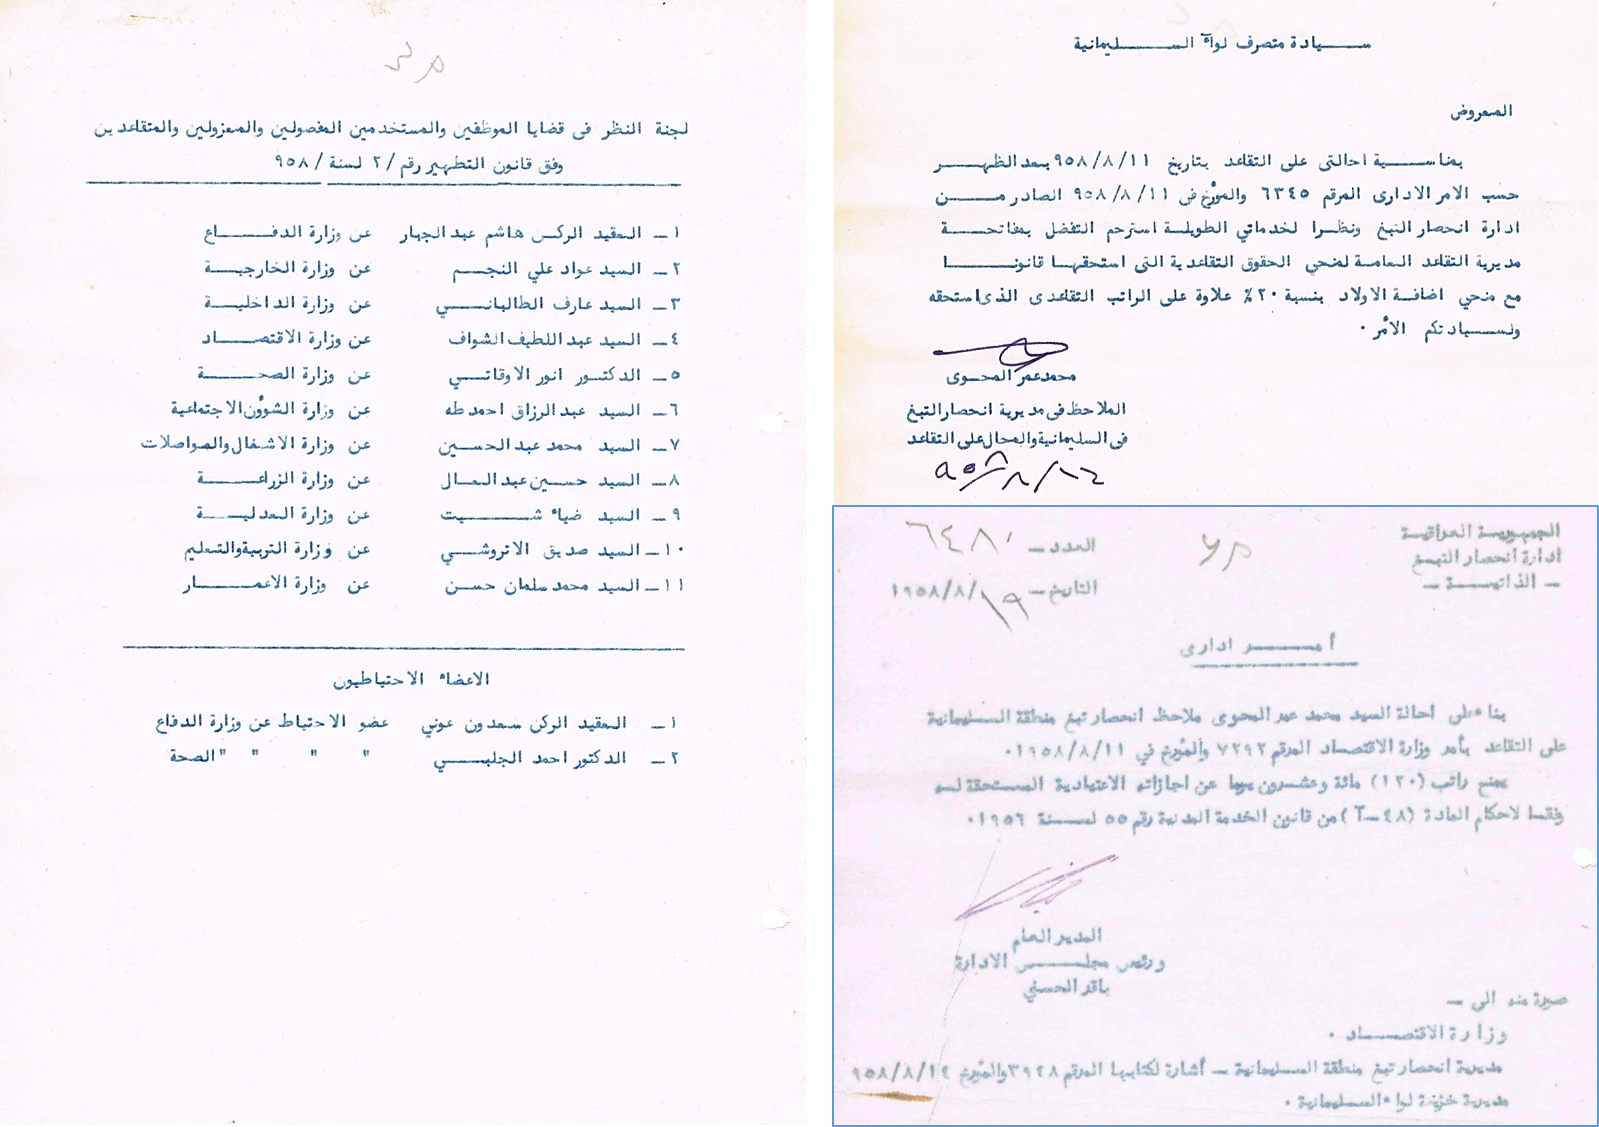 لجنة النظر فى قضايا الموظفين والمستخدمين المفصولين والمعزولين والمتقاعدين
وفق قانون التطهير رقم/ ٢ لسنة/ ٩٥٨
١ـ العقيد الركن هاشم عبد الجبار عن وزارة الدفـــاع
٢ـ السيد عواد علي النجـم عن وزارة الخارجيـة
٣ـ السيد عارف الطالبانـــي عن وزارة الداخليـة
٤ـ السيد عبد اللطيف الشواف عن وزارة الاقتصـاد
٥ـ الدكتور انور الاوقاتـي عن وزارة الصحـــة
٦ـ السيد عبد الرزاق احمد طه عن وزارة الشؤون الاجتماعية
٧ـ السيد محمد عبد الحسـين عن وزارة الاشغال والمواصلات
٨ـ السيد حسـين عبد العـال عن وزارة الزراعـــة
٩ـ السيد ضياء شـــيت عن وزارة العدليــة
١٠ـ السيد صديق الاتروشـي عن وزارة التربية والتعليم
١١ـ السيد محمد سلمان حسـن عن وزارة الاعمـــار
الاعضاء الاحتياطيون
١ـ العقيد الركن سعدون عوني عضو الاحتياط عن وزارة الدفاع
٢ـ الدكتور احمد الجلبـــي " " " " الصحة
سـيادة متصرف لواء السـليمانية
المعروض
بمناسـبة احالتى على التقاعد بتاريخ ٩٥٨/٨/١١ بعد الظهـر
حسب الامر الادارى المرقم ٦٣٤٥ والمؤرخ فى ٩٥٨/٨/١١ الصادر مــن
ادارة انحصار التبغ ونظرا لخدماتي الطويلة استرحم التفضل بمفاتحـة
مديرية التقاعد العامة لمنحي الحقوق التقاعدية التى استحقها قانونـا
مع منحي اضافة الاولاد بنسبة ٢٠٪ علاوة على الراتب التقاعدى الذى استحقه
ولسـيادتكم الأمر ٠
محمد عمر المحـوى
الملاحظ فى مديرية انحصار التبغ
فى السليمانية والمحال على التقاعد
الجمهوريـة العراقيـة
ادارة انحصار التبـغ
ـ الذاتيـــة ـ
العدد ـ ٦٤٨٠
التاريخ ـ ١٩/ ١٩٥٨/٨
أمـــر ادارى
بناء على احالة السيد محمد عمر المحوى ملاحظ انحصار تبغ منطقة السـليمانية
على التقاعد بأمر وزارة الاقتصـاد المرقم ٧٢٩٢ والمؤرخ في ١٩٥٨/٨/١١ ٠
يمنح راتب (١٢٠) مائة وعشـرون يوما عن اجازاته الاعتيادية المسـتحقة لـه
وفقـا لاحكام المادة (٤٨ـآ) من قانون الخدمة المدنية رقم ٥٥ لسـنة ١٩٥٦ ٠
المدير العام
ورئيس مجلــس الادارة
باقر الحسني
صورة منه الى ـ
وزارة الاقتصـــاد ٠
مديرية انحصار تبغ منطقة السـليمانية ـ أشارة لكتابها المرقم ٣٩٤٨ والمؤرخ ٩٥٨/٨/١٤
مديرية خزينة لواء السـليمانية ٠